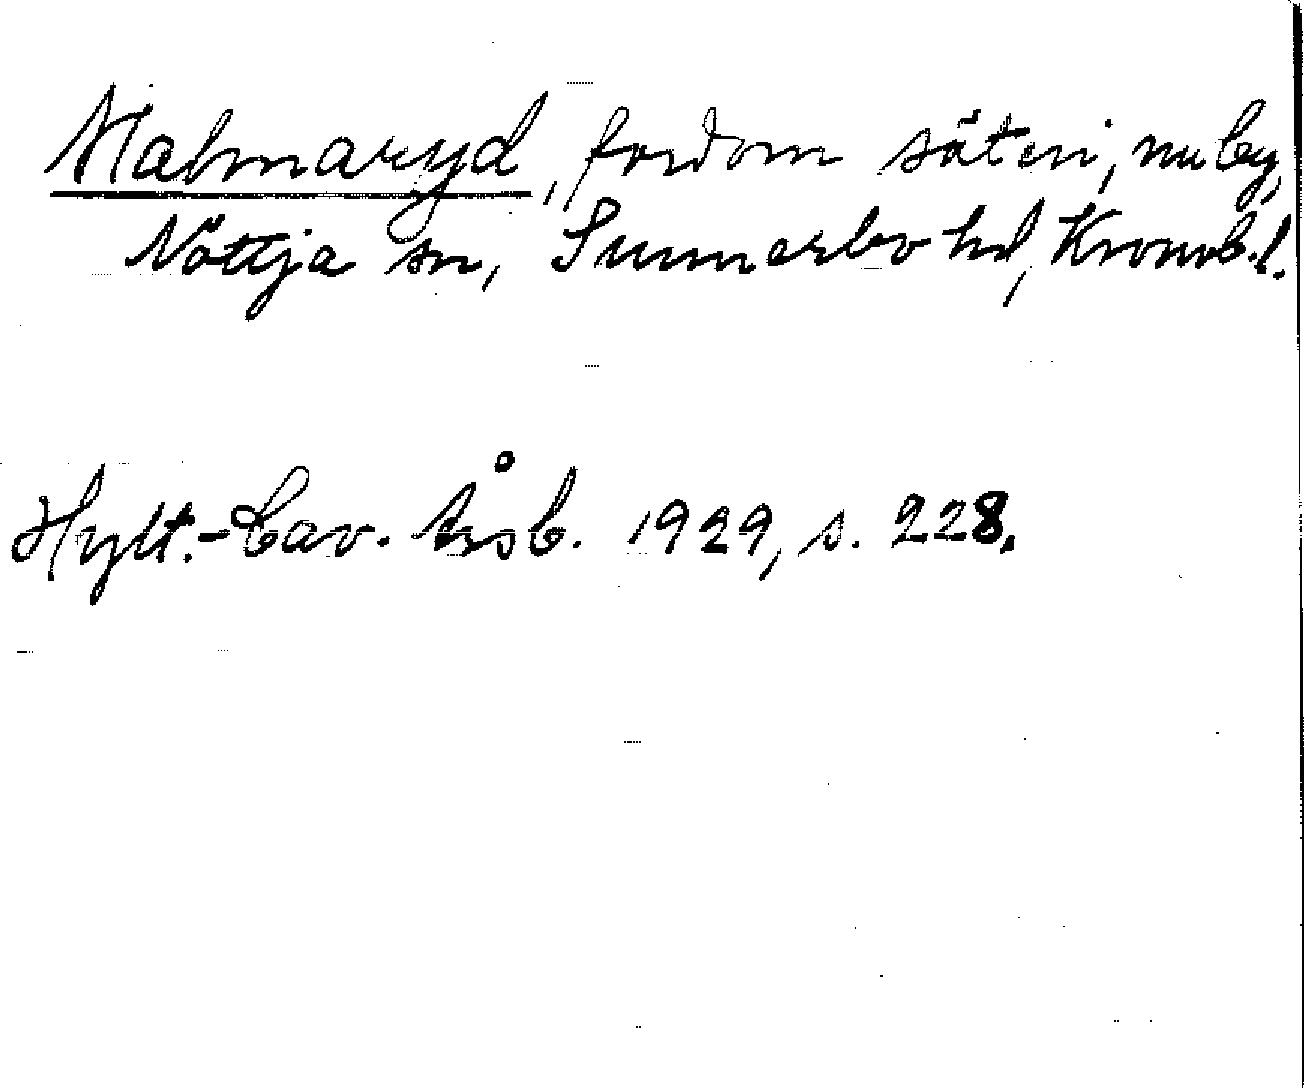 Malmaryd, fordom säteri, nu by,
Nöttja sn, Sunnerbo hd, Kronob. l.
Hylt.-Cav. årsb. 1929, s. 228.